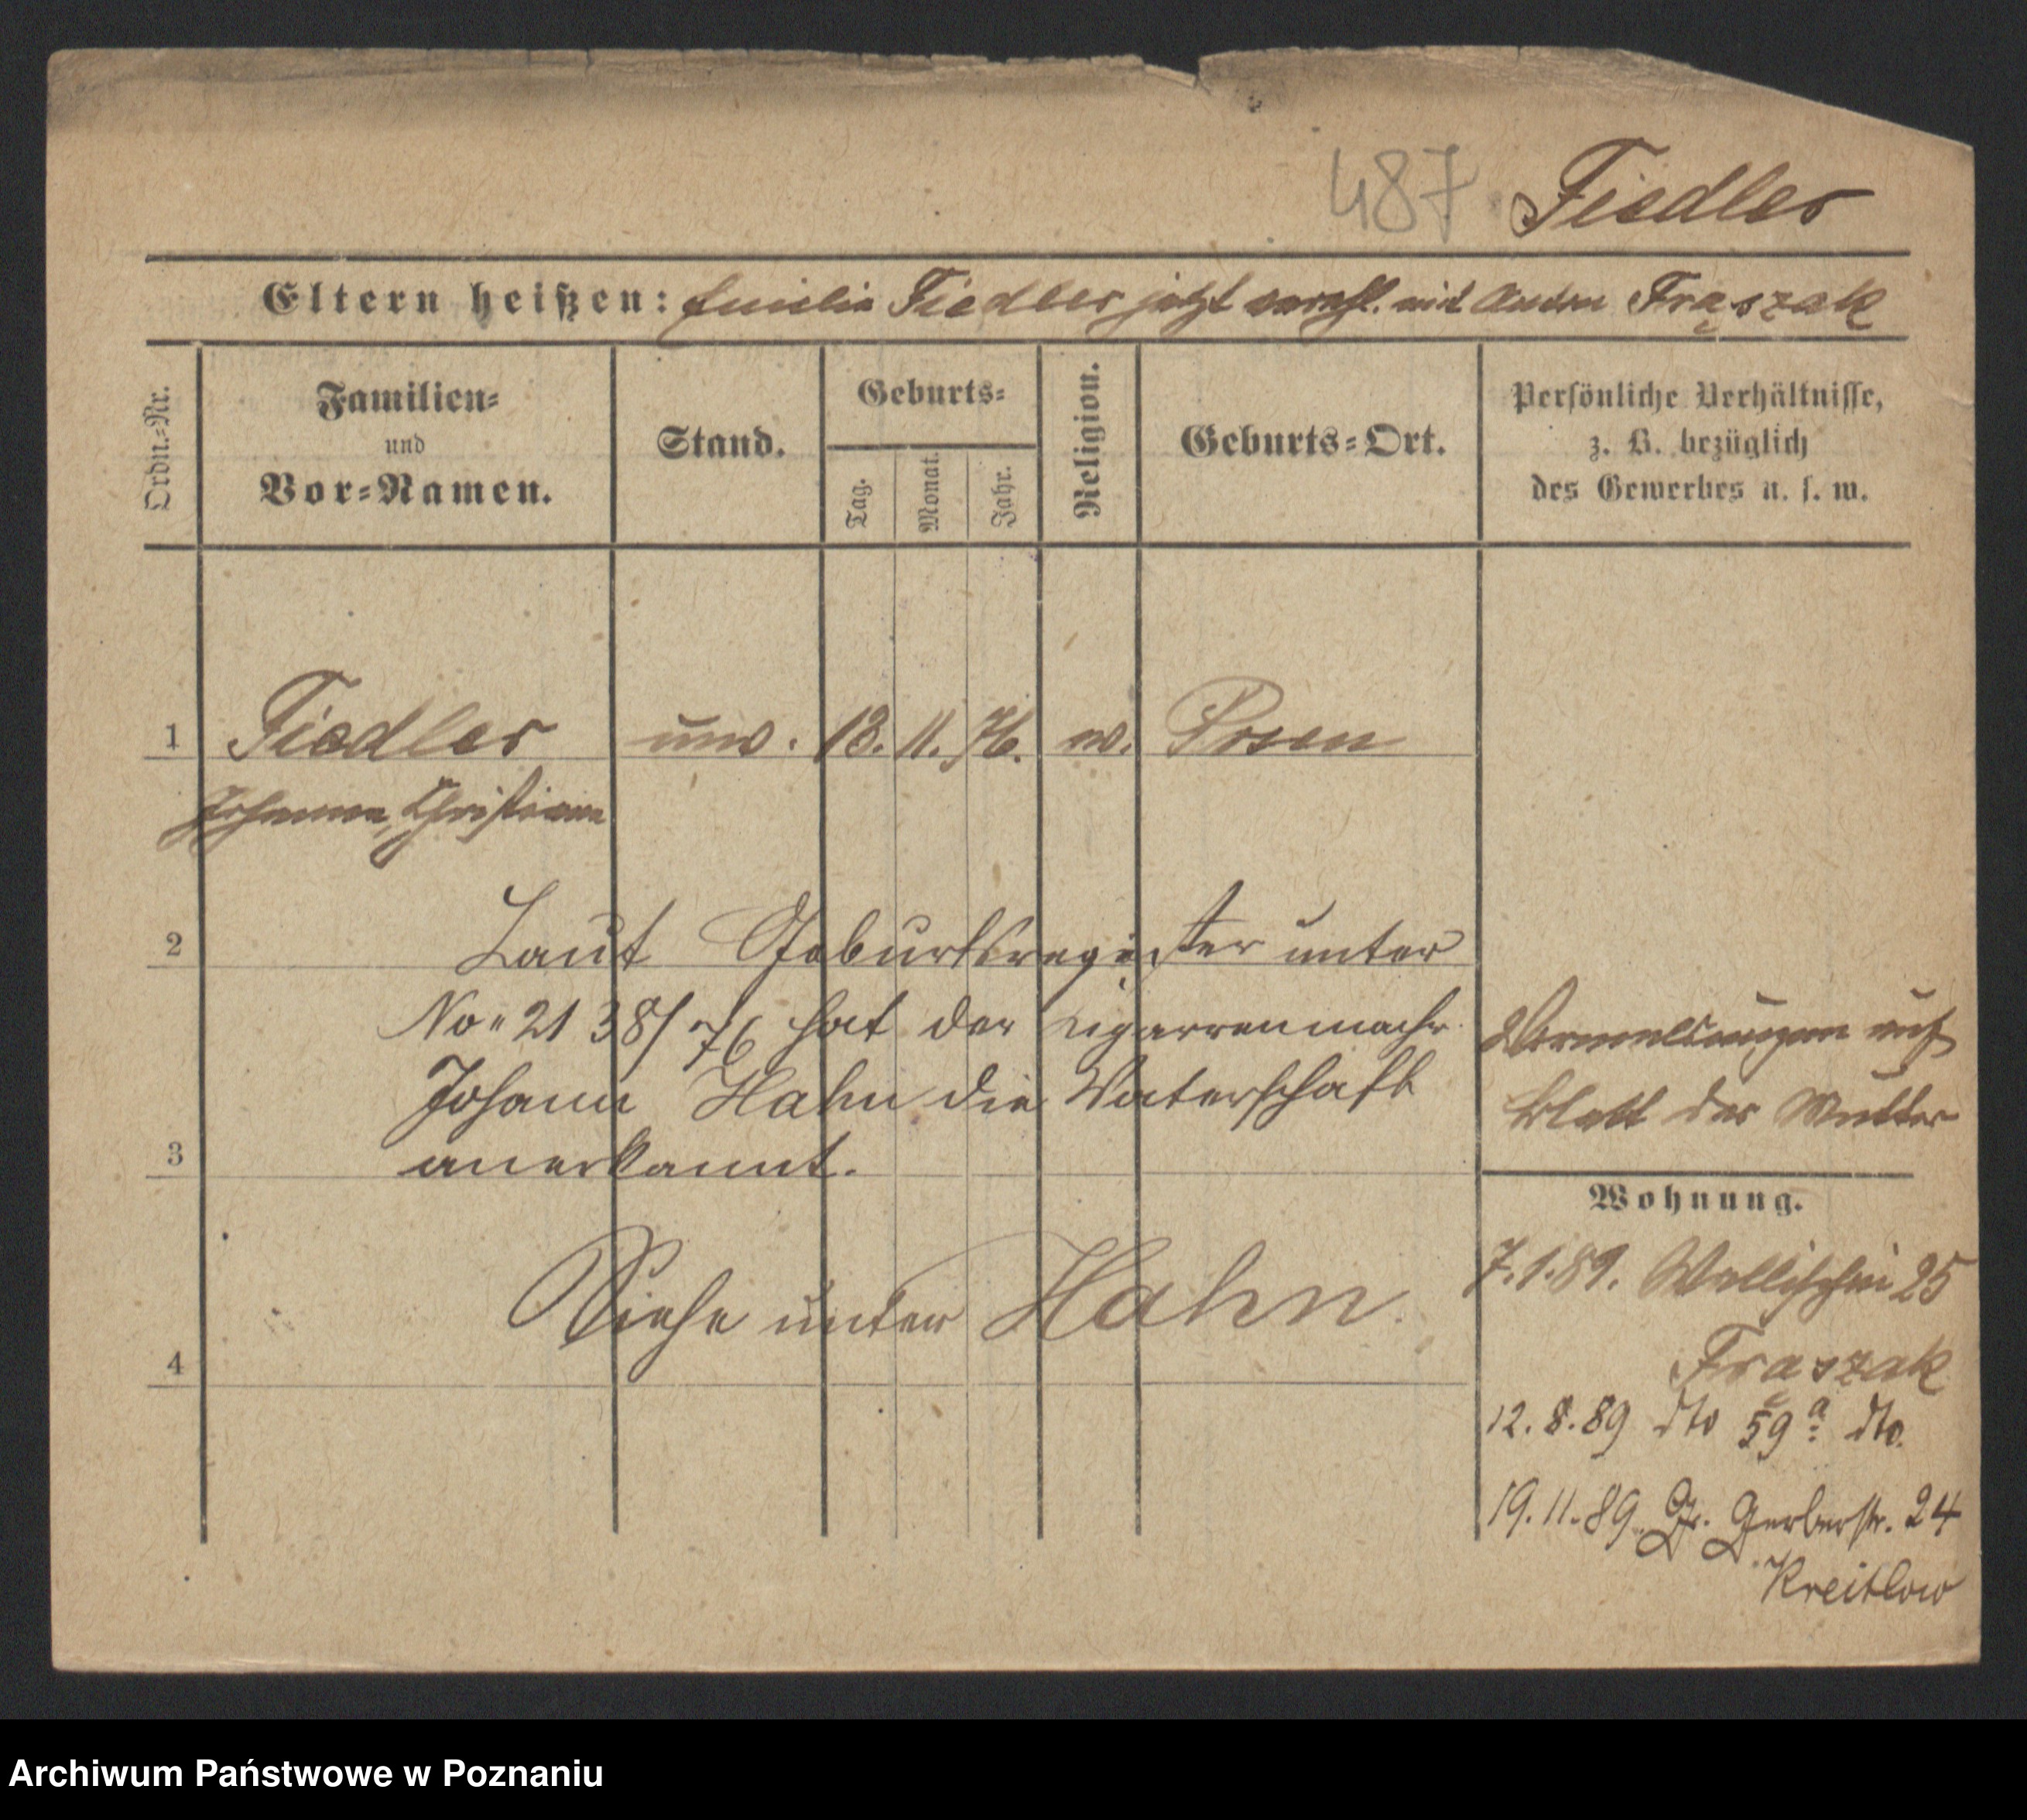 487 Fiedler
Eltern heißen: Emilie Fiedler jetzt verehl. mit Anton Frąszak
Ordn.-Nr.
Familien-
und
Vor-Namen.
Stand.
Geburts-
Tag.
Monat.
Jahr.
Religion.
Geburts-Ort.
Persönliche Verhältnisse,
z. B. bezüglich
des Gewerbes u. s. w.
1 Fiedler unv. 18. 11. 76. ev. Posen
Johanna, Christiane
2 Laut Geburtsregister unter
No 2138/76 hat der Cigarrenmachr.
Johann Hahn die Vaterschaft
3 anerkannt.
Siehe unter Hahn.
4
auf
Blatt der Mutter
Wohnung.
7.1.89. Wallischei 25
Frąszak
12.8.89 dto 59a dto.
19.11.89 Gr. Gerberstr. 24
Kreitlow
Archiwum Państwowe w Poznaniu